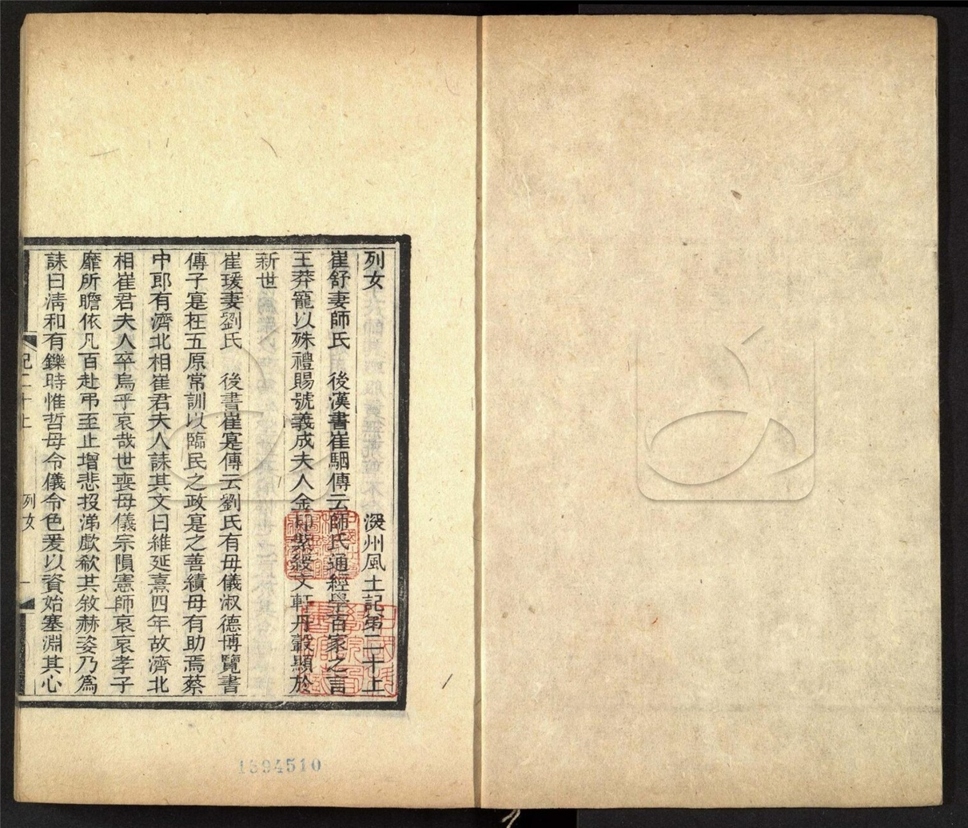 列女 深州風土記第二十上
崔舒妻師氏 後漢書崔駰傳云師氏通經學百家之言
王莽寵以殊禮賜號義成夫人金印紫綬文軒丹轂顯於
新世
崔瑗妻劉氏 後書崔寔傳云劉氏有母儀淑德博覽書
傳子寔在五原常訓以臨民之政寔之善績母有助焉蔡
中郎有濟北相崔君夫人誄其文曰維延熹四年故濟北
相崔君夫人卒烏乎哀哉世喪母儀宗隕憲師哀哀孝子
靡所瞻依凡百赴弔至止增悲投涕歔欷其敘赫姿乃爲
誄曰淸和有鑠時惟哲母令儀令色爰以資始塞淵其心
記二十上 列女 一
1394510